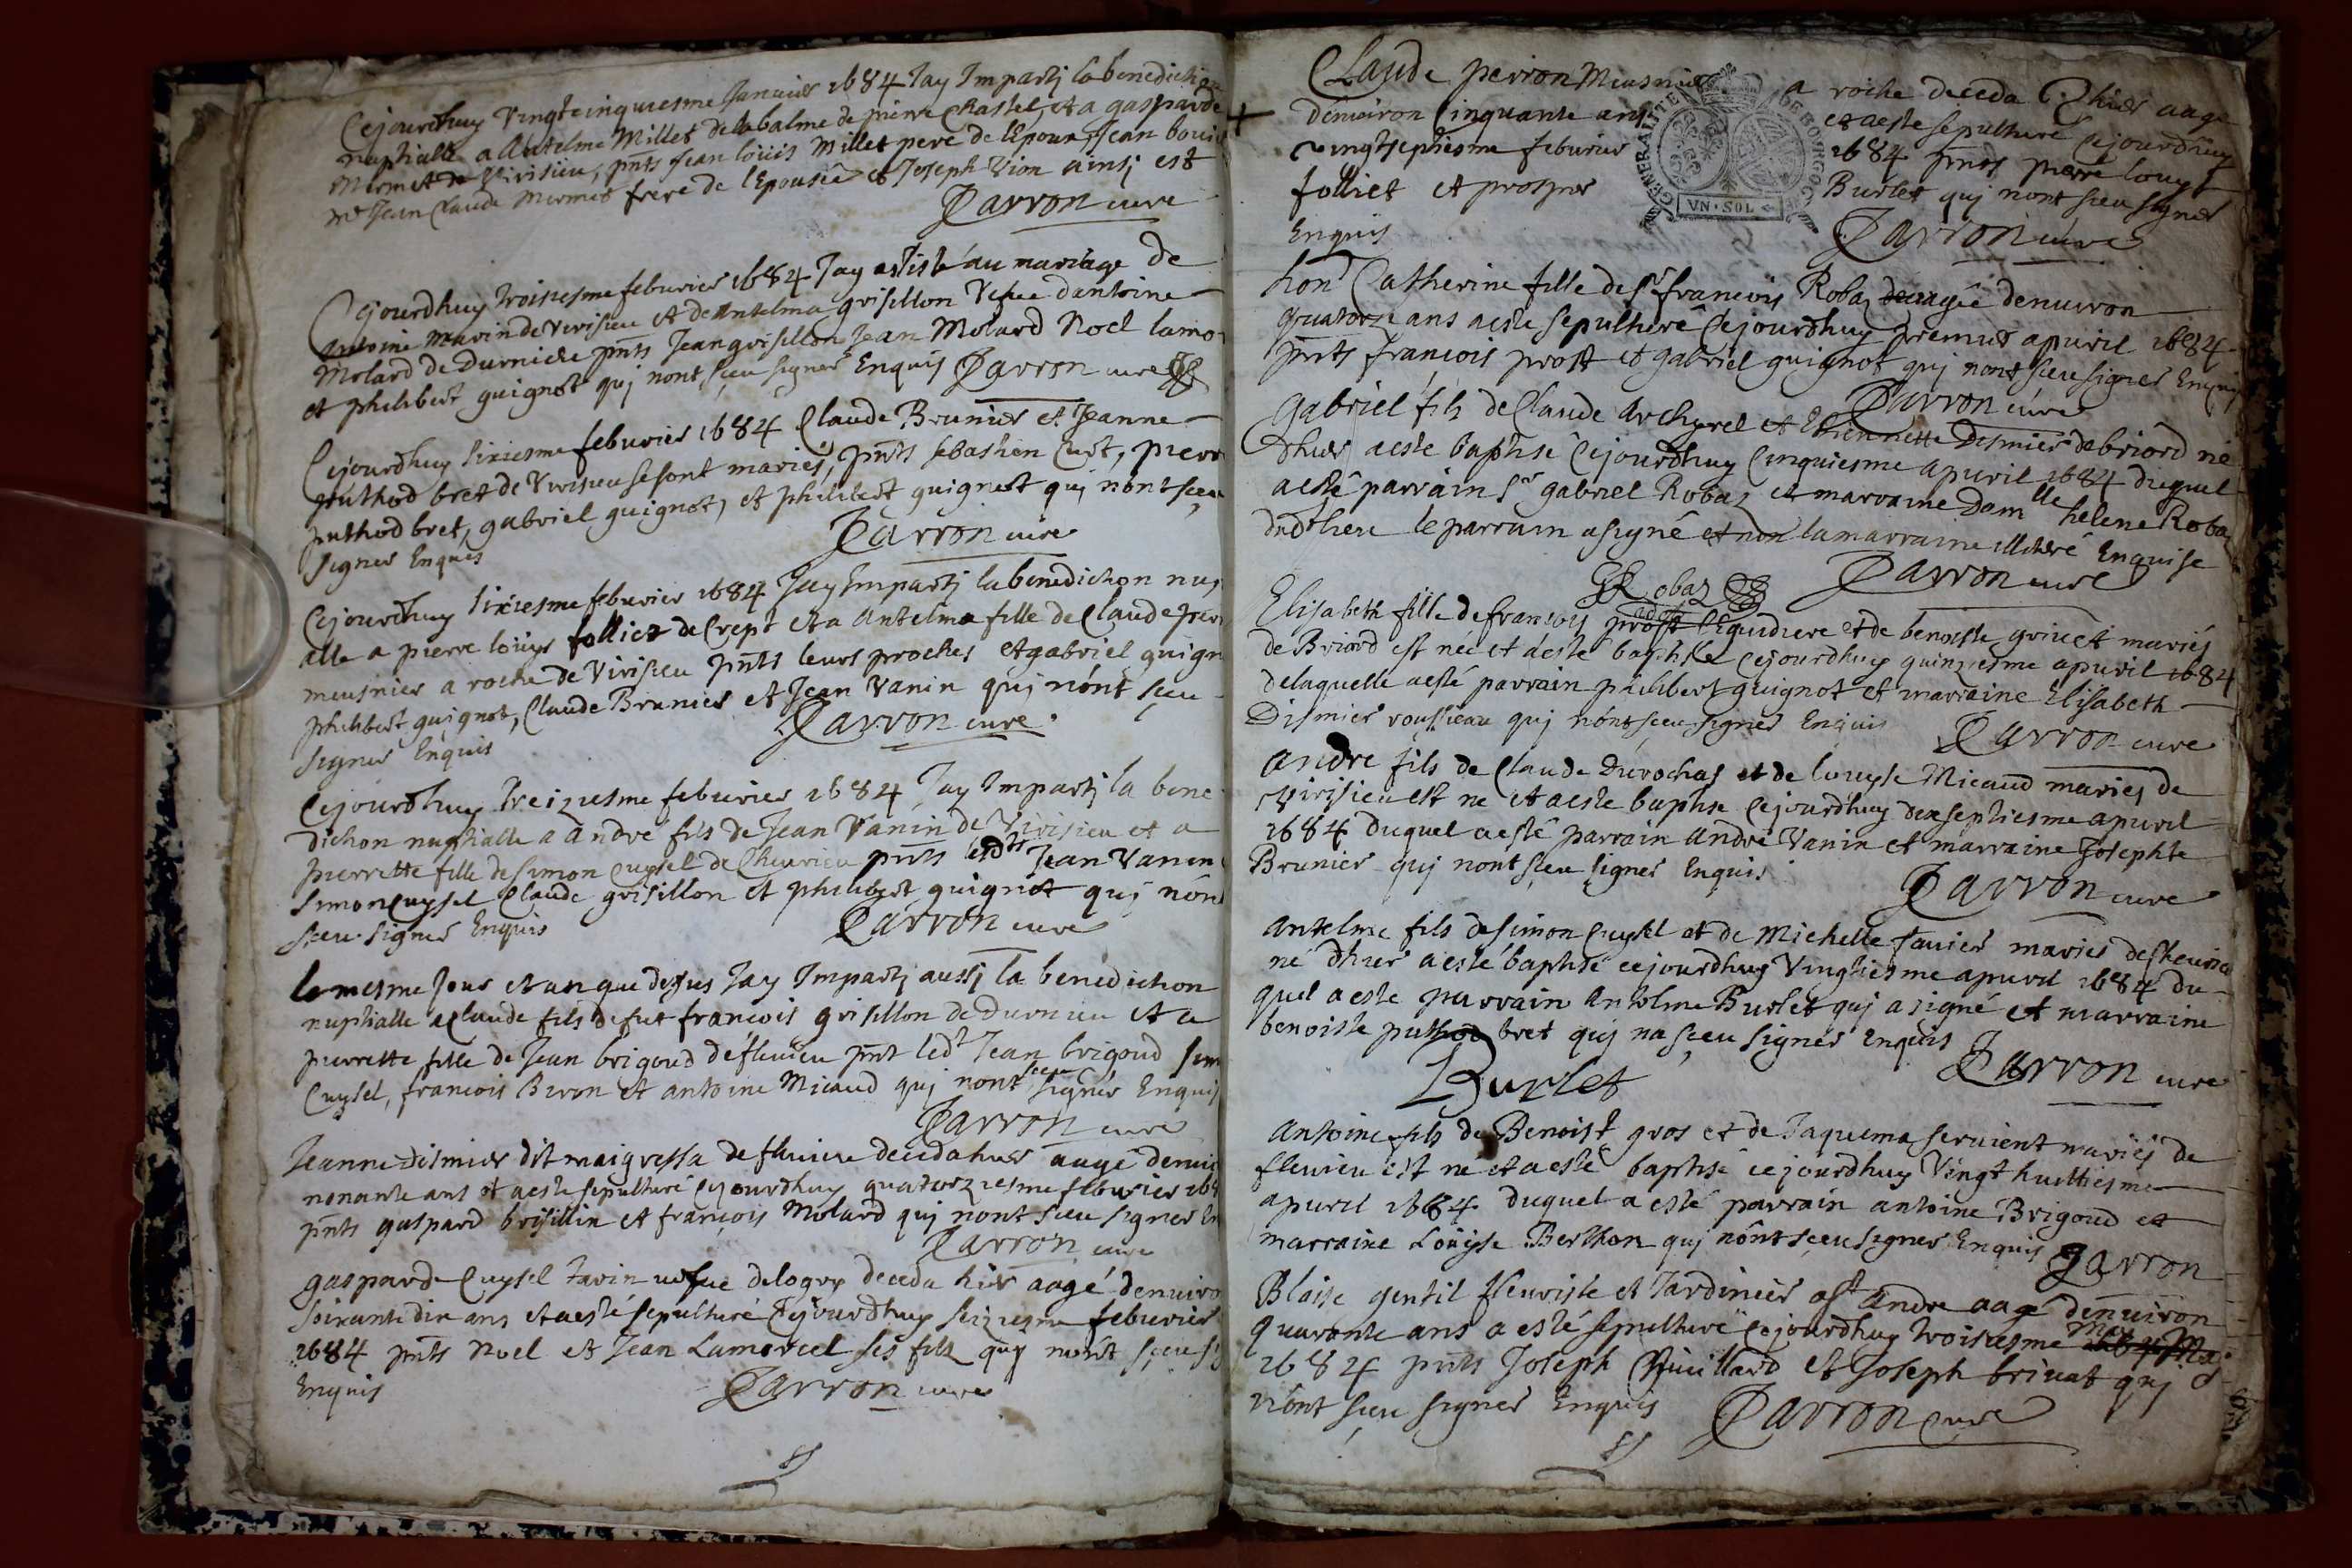 Cejourdhuy Vingtcinquiesme Januier 1684 Jay Impartj la benediction
nuptialle a Antelme Millet de la balme de pierre Chastel, et a gasparde
Mermet de Virisieu, pnts Jean loüis Millet pere de lEpoux, Jean
mr Jean Claude Mermet frere de lEpousée et Joseph Vion ainsj est
Darron cure
Cejourdhuy troisiesme feburier 1684 Jay assisté au mariage de
Antoine Marin de Virisieu et de Antelma grisillon Vefue dantoine
Molard de Durnieu pnts Jean grisillon Jean Molard Noel lamo
et philibert guignot quj nont sceu signer Enquis Darron cure
Cejourdhuy Sixiesme feburier 1684 Claude Brunier et Jeanne
puthod bret de Virisieu se sont mariés, pnts sebastien Curt, pierre
puthod bret, gabriel guignot, et philibert guignot quj nont sceu
signer Enquis
Darron cure
Cejourdhuy Sixiesme feburier 1684 Jay Impartj la benediction nup
alle a pierre loüys folliet de Crept et a Antelma fille de Claude
meusnier a roche de Virisieu pnts leurs proches et gabriel guign
philibert guignot, Claude Brunier et Jean Vanin quj nont sceu
signer Enquis
Darron cure
Cejourdhuy treiziesme feburier 1684 Jay Impartj la bene
diction nuptialle a Andre fils de Jean Vanin de Virisieu et a
pierrette fille de Simon Cuysel de Cheurieu pnts lesdts Jean Vanin
Simon Cuysel Claude grisillon et philibert guignot quj nont
sceu signer Enquis
Darron cure
le mesme Jour et an que dessus Jay Impartj aussj la benediction
nuptialle a Claude fils de fut francois grisillon de Durnieu et a
pierrette fille de Jean brigoud de fleurieu pnt ledt Jean brigoud
Cuysel, francois Biron et antoine Micaud quj nont sceu signer Enquis
Darron cure
Jeanne Dismier dit maigressa de deceda hier aagé denui
nonante ans et a este sepulturé cejourdhuy quatorziesme feburier 168
pnts gaspard brisillin et françois Molard quj nont sceu signer En
Darron cure
gasparde Cuysel vefue de logry deceda hier aagé denuiro
soixante dix ans et a esté sepulturé Cejourdhuy seiziesme feburier
1684 pnts Noel et Jean Lamorcel ses filz quj nont sceu si
Enquis
Darron cure
Claude perron Meusnier a roche deceda hier aage
denuiron Cinquante ans et a este sepulturé Cejourdhuy
vingtseptiesme feburier 1684 pnts pierre louys
folliet et prosper Burlet quj nont sceu signer
Enquis
Darron cure
GENERALITE DE BOURGOG
VN·SOL
hond Catherine fille de sr francois Robaz aagée denuiron
quatorz ans a este sepulturé Cejourdhuy premier apuril 1684
pnts françois prost et gabriel guignot quj nont sceu signer Enquis
Darron cure
Gabriel fils de Claude Archyrel et Etiennette Dismier de briord né
dhier a este baptisé Cejourdhuy Cinquiesme apuril 1684 duquel
a esté parrain sr gabriel Robaz et marraine Damlle helene Robaz
le parrain a signé et non la marraine illiteré Enquise
GRobaz
Darron cure
Elisabeth fille de fransoys prost lEquidiere et de benoiste griuet mariés
de Briord est née et a esté baptisée Cejourdhuy quinziesme apuril 1684
de laquelle a esté parrain philibert guignot et marraine Elisabeth
Dismier rousseau quj nont sceu signer Enquis
Darron cure
Andre fils de Claude Durochat et de louyse Micaud mariez de
Virisieu est né et a este baptisé Cejourdhuy dixseptiesme apuril
1684 duquel a esté parrain André Vanin et marraine Josephte
Brunier quj nont sceu signer Enquis
Darron cure
Antelme fils de simon Cuysel et de Michelle fauier mariés de Cheurieu
né dhier a esté baptisé cejourdhuy Vingtiesme apuril 1684 du
quel a este parrain Antelme Burlet quj a signé et marraine
benoiste puthod bret quj na sceu signer Enquis
Burlet
Darron cure
Antoine fils de Benoist gros et de Jaquema seruient mariés de
fleurieu est né et a esté baptisé cejourdhuy Vingt huittiesme
apuril 1684 duquel a esté parrain antoine Brigoud et
marraine Loüyse Berthon quj nont sceu signer Enquis
Darron
Blaise gentil fleuriste et Jardinier a st Andre aagé denuiron
quarante ans a esté sepulturé Cejourdhuy troisiesme May
1684 pnts Joseph et Joseph briuat quj
nont sceu signer Enquis
Darron Cure